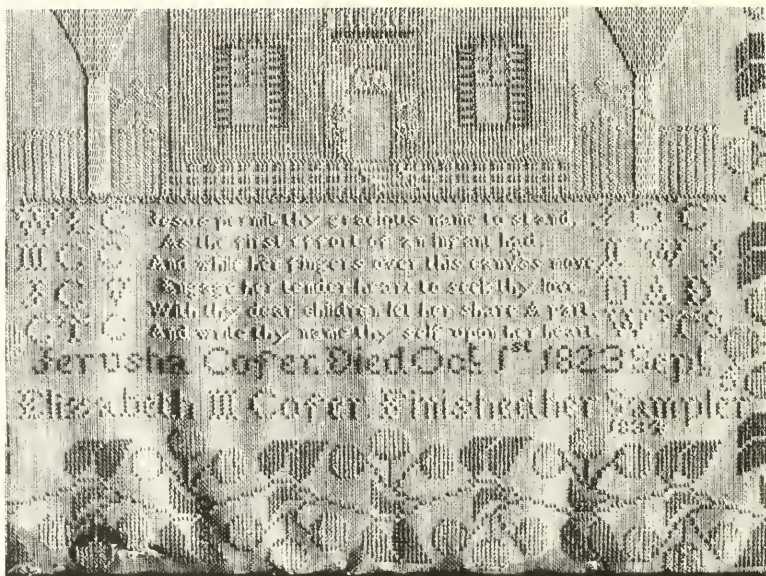 Jesus permit thy gracious name to stand,
As the first effort of an infant had.
And while her fingers over this canvass move,
Engage her tender heart to seek thy love,
With thy dear children let her share a part,
C. T C And write thy name thy self upon her heart.
Jerusha Cofer. Died Oct. 1st 1823 Sept
Elizabeth M Cofer Finished her Sampler